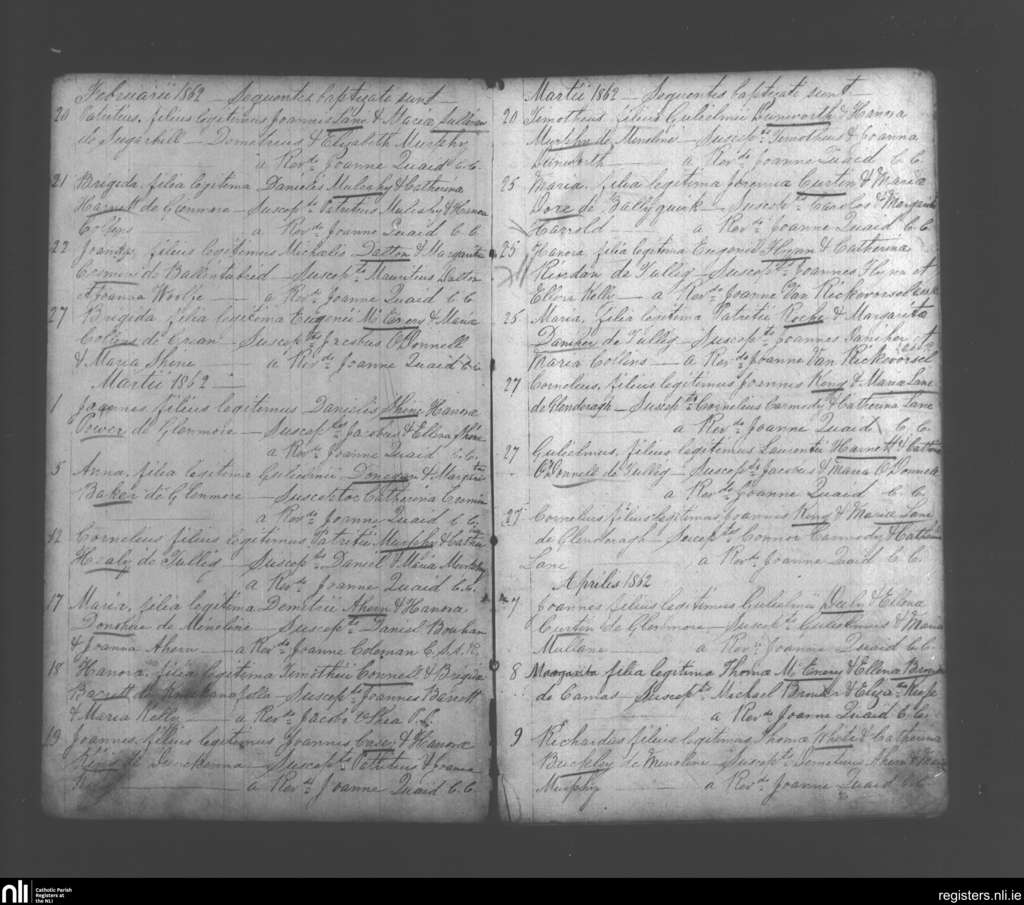 Februarii 1862 — Sequentes baptizate sunt
20 Patritius, filius legitimus Joannis Lane & Maria Sullivan
de Sugarhill — Demetrius & Elizabeth Murphy
a Revdo Joanne Quaid C.C.
21 Brigida, filia legitima Danielis Mulcahy & Catherina
Harnett de Glenmore — Suscepts Patritius Mulcahy & Hanora
Collins a Revdo Joanne Quaid C.C.
22 filius legitimus Michaelis Dalton & Margarita
de — Suscepts Mauritius Dalton
& Joanna Woulfe — a Revdo Joanne Quaid C.C.
27 Brigida, filia legitima Eugenii McEnery & Maria
Collins de — Suscepts Jacobus O'Donnell
& Maria a Revdo Joanne Quaid C.C.
Martii 1862
1 Joannes filius legitimus Danielis Hanora
Power de Glenmore — Suscepts Jacobus & Ellena
a Revdo Joanne Quaid C.C.
5 Anna, filia legitima Gulielmi Donegan & Margarita
Baker de Glenmore — Susceptor Catherina
a Revdo Joanne Quaid C.C.
12 Cornelius filius legitimus Patritii Murphy &
Healy de Tullig — Suscepts Daniel & Maria Murphy
a Revdo Joanne Quaid C.C.
17 Maria, filia legitima Demetrii Ahern & Hanora
Donohue de Mineline — Suscepts Daniel
& Joanna Ahern — a Revdo Joanne Coleman
18 Hanora, filia legitima Timothii Connell & Brigida
Barrett de — Suscepts Joannes Barrett
& Maria Kelly — a Revdo Jacobo O'Shea P.P.
19 Joannes, filius legitimus Joannis Casey & Hanora
de — Suscepts Patritius & Joanna
a Revdo Joanne Quaid C.C.
Martii 1862 — Sequentes baptizate sunt —
20 Timotheus filius Gulielmi Dunworth & Hanora
Murphy de Mineline — Suscepts Timotheus & Joanna
Dunworth — a Revdo Joanne Quaid C.C.
25 Maria, filia legitima Jeremia Curtin & Maria
Dore de Ballyquirk — Suscepts Carolus & Margarita
Harrold — a Revdo Joanne Quaid C.C.
25 Hanora, filia legitima Eugenii Flynn & Catherina
Riordan de Tullig — Suscepts Joannes Flynn et
Ellen Kelly — a Revdo Joanne Van Rickevorsel
25 Maria, filia legitima Patritii Roche & Margarita
Daniher de Tullig — Suscepts Joannes Daniher et
Maria Collins — a Revdo Joanne Van Rickevorsel
27 Cornelius, filius legitimus Joannis King & Maria Lane
de Glenderagh — Suscepts Cornelius Carmody & Catherina Lane
a Revdo Joanne Quaid C.C.
27 Gulielmus, filius legitimus Laurentii Harnett &
O'Donnell de Tullig — Suscepts Jacobus & Maria O'Donnell
a Revdo Joanne Quaid C.C.
27 Cornelius filius legitimus Joannis King & Maria Lane
de Glenderagh — Suscepts Connor Carmody &
Lane a Revdo Joanne Quaid C.C.
Aprilis 1862
7 Joannes filius legitimus Gulielmi Daly & Ellena
Curtin de Glenmore — Suscepts Gulielmus & Maria
Mullane a Revdo Joanne Quaid C.C.
8 Margarita filia legitima Thoma McEnery & Ellena
de Camas Suscepts Michael & Eliza
a Revdo Joanne Quaid C.C.
9 Richardus filius legitimus Thoma White & Catherina
Buckley de Mineline — Suscepts Ahern & Maria
Murphy — a Revdo Joanne Quaid C.C.
nli Catholic Parish
Registers at
the NLI
registers.nli.ie